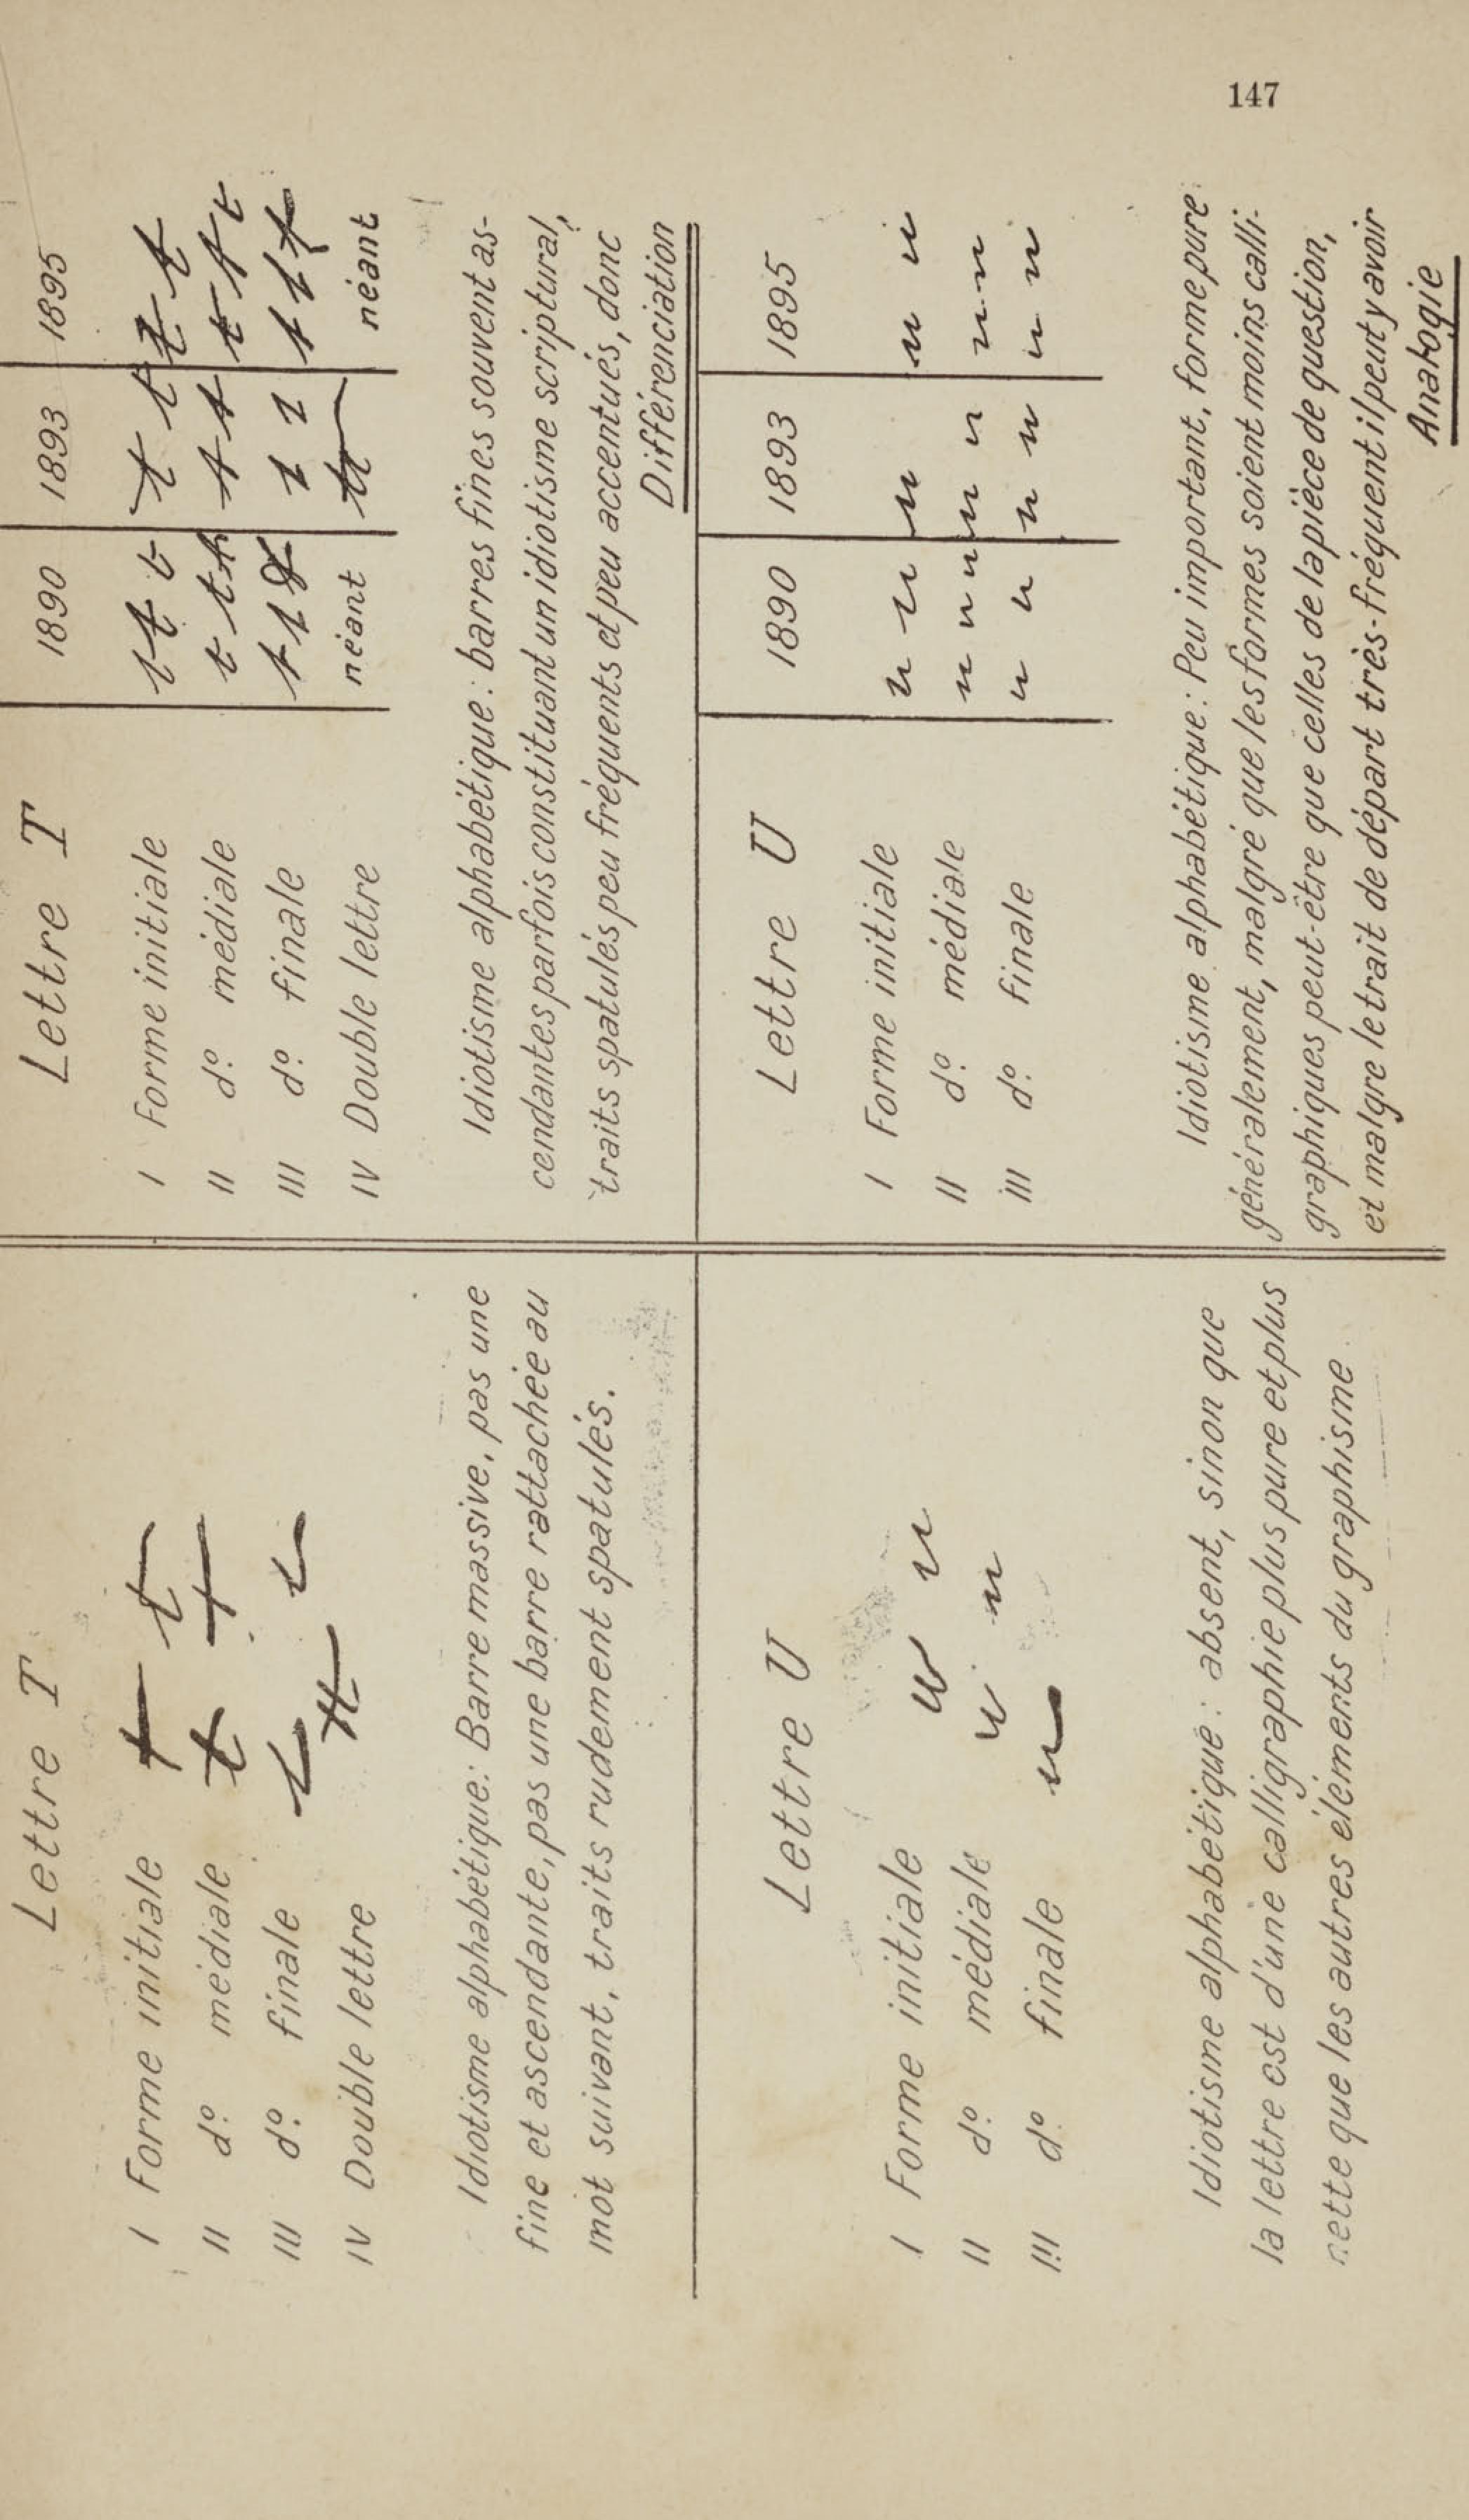 147
Lettre T
I Forme initiale
II dº médiale
III dº finale
IV Double lettre
Idiotisme alphabétique: Barre massive, pas une
fine et ascendante, pas une barre rattachée au
mot suivant, traits rudement spatulés.
Lettre T
1890 1893 1895
I Forme initiale t t t t t t t
II dº médiale t t t t t t t t
III dº finale t t t t t t t t
IV Double lettre néant tt néant
Idiotisme alphabétique: barres fines souvent as-
cendantes parfois constituant un idiotisme scriptural,
traits spatulés peu fréquents et peu accentués, donc
Différenciation
Lettre U
I Forme initiale u u
II dº médiale u u
III dº finale u
Idiotisme alphabétique: absent, sinon que
la lettre est d'une calligraphie plus pure et plus
nette que les autres éléments du graphisme
Lettre U
1890 1893 1895
I Forme initiale u u u u u
II dº médiale u u u u u u u
III dº finale u u u u u u
Idiotisme alphabétique: Peu important, forme pure
généralement, malgré que les formes soient moins calli-
graphiques peut-être que celles de la pièce de question,
et malgre le trait de départ très-fréquent il peut y avoir
Analogie